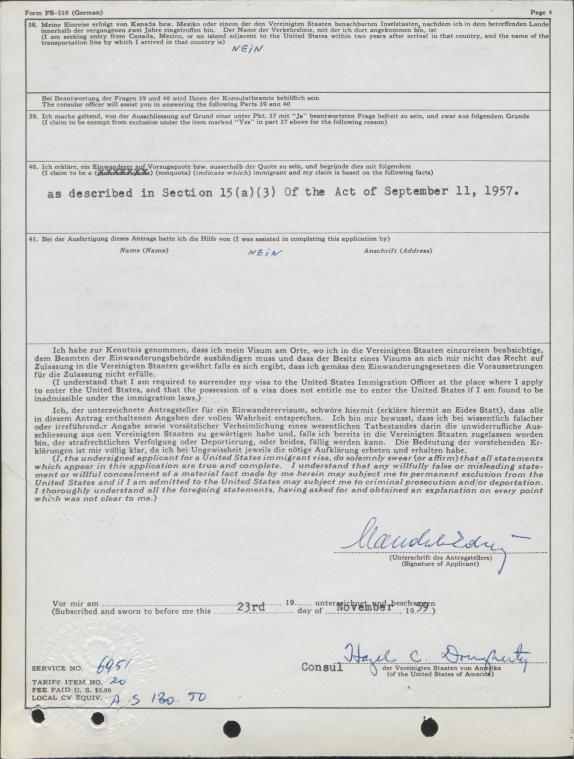 Form FS-510 (German) Page 4
38. Meine Einreise erfolgt von Kanada bzw. Mexiko oder einem der den Vereinigten Staaten benachbarten Inselstaaten, nachdem ich in dem betreffenden Lande
innerhalb der vergangenen zwei Jahre eingetroffen bin. Der Name der Verkehrslinie, mit der ich dort angekommen bin, ist
(I am seeking entry from Canada, Mexico, or an island adjacent to the United States within two years after arrival in that country, and the name of the
transportation line by which I arrived in that country is)
NEIN
Bei Beantwortung der Fragen 39 und 40 wird Ihnen der Konsulatbeamte behilflich sein
The consular officer will assist you in answering the following Parts 39 and 40
39. Ich mache geltend, von der Ausschliessung auf Grund einer unter Pkt. 37 mit "Ja" beantworteten Frage befreit zu sein, und zwar aus folgendem Grunde
(I claim to be exempt from exclusion under the item marked "Yes" in part 37 above for the following reason)
40. Ich erkläre, ein Einwanderer auf Vorzugsquote bzw. ausserhalb der Quote zu sein, und begründe dies mit folgendem
(I claim to be a (nonquota) (indicate which) immigrant and my claim is based on the following facts)
as described in Section 15(a)(3) Of the Act of September 11, 1957.
41. Bei der Ausfertigung dieses Antrags hatte ich die Hilfe von (I was assisted in completing this application by)
Name (Name) NEIN Anschrift (Address)
Ich habe zur Kenntnis genommen, dass ich mein Visum am Orte, wo ich in die Vereinigten Staaten einzureisen beabsichtige,
dem Beamten der Einwanderungsbehörde aushändigen muss und dass der Besitz eines Visums an sich mir nicht das Recht auf
Zulassung in die Vereinigten Staaten gewährt falls es sich ergibt, dass ich gemäss den Einwanderungsgesetzen die Voraussetzungen
für die Zulassung nicht erfülle.
(I understand that I am required to surrender my visa to the United States Immigration Officer at the place where I apply
to enter the United States, and that the possession of a visa does not entitle me to enter the United States if I am found to be
inadmissible under the immigration laws.)
Ich, der unterzeichnete Antragsteller für ein Einwanderervisum, schwöre hiermit (erkläre hiermit an Eides Statt), dass alle
in diesem Antrag enthaltenen Angaben der vollen Wahrheit entsprechen. Ich bin mir bewusst, dass ich bei wissentlich falscher
oder irreführender Angabe sowie vorsätzlicher Verheimlichung eines wesentlichen Tatbestandes darin die unwiderrufliche Aus-
schliessung aus den Vereinigten Staaten zu gewärtigen habe und, falls ich bereits in die Vereinigten Staaten zugelassen worden
bin, der strafrechtlichen Verfolgung oder Deportierung, oder beides, fällig werden kann. Die Bedeutung der vorstehenden Er-
klärungen ist mir völlig klar, da ich bei Ungewissheit jeweils die nötige Aufklärung erbeten und erhalten habe.
(I, the undersigned applicant for a United States immigrant visa, do solemnly swear (or affirm) that all statements
which appear in this application are true and complete. I understand that any willfully false or misleading state-
ment or willful concealment of a material fact made by me herein may subject me to permanent exclusion from the
United States and if I am admitted to the United States may subject me to criminal prosecution and/or deportation.
I thoroughly understand all the foregoing statements, having asked for and obtained an explanation on every point
which was not clear to me.)
(Unterschrift des Antragstellers)
(Signature of Applicant)
Vor mir am 19 unterzeichnet und beschworen
(Subscribed and sworn to before me this 23rd day of November 1959.)
Hazel C. Dougherty
Consul der Vereinigten Staaten von Amerika
(of the United States of America)
SERVICE NO. 6951
TARIFF ITEM NO. 20
FEE PAID U. S. $5.00
LOCAL CV EQUIV. A S 130.50